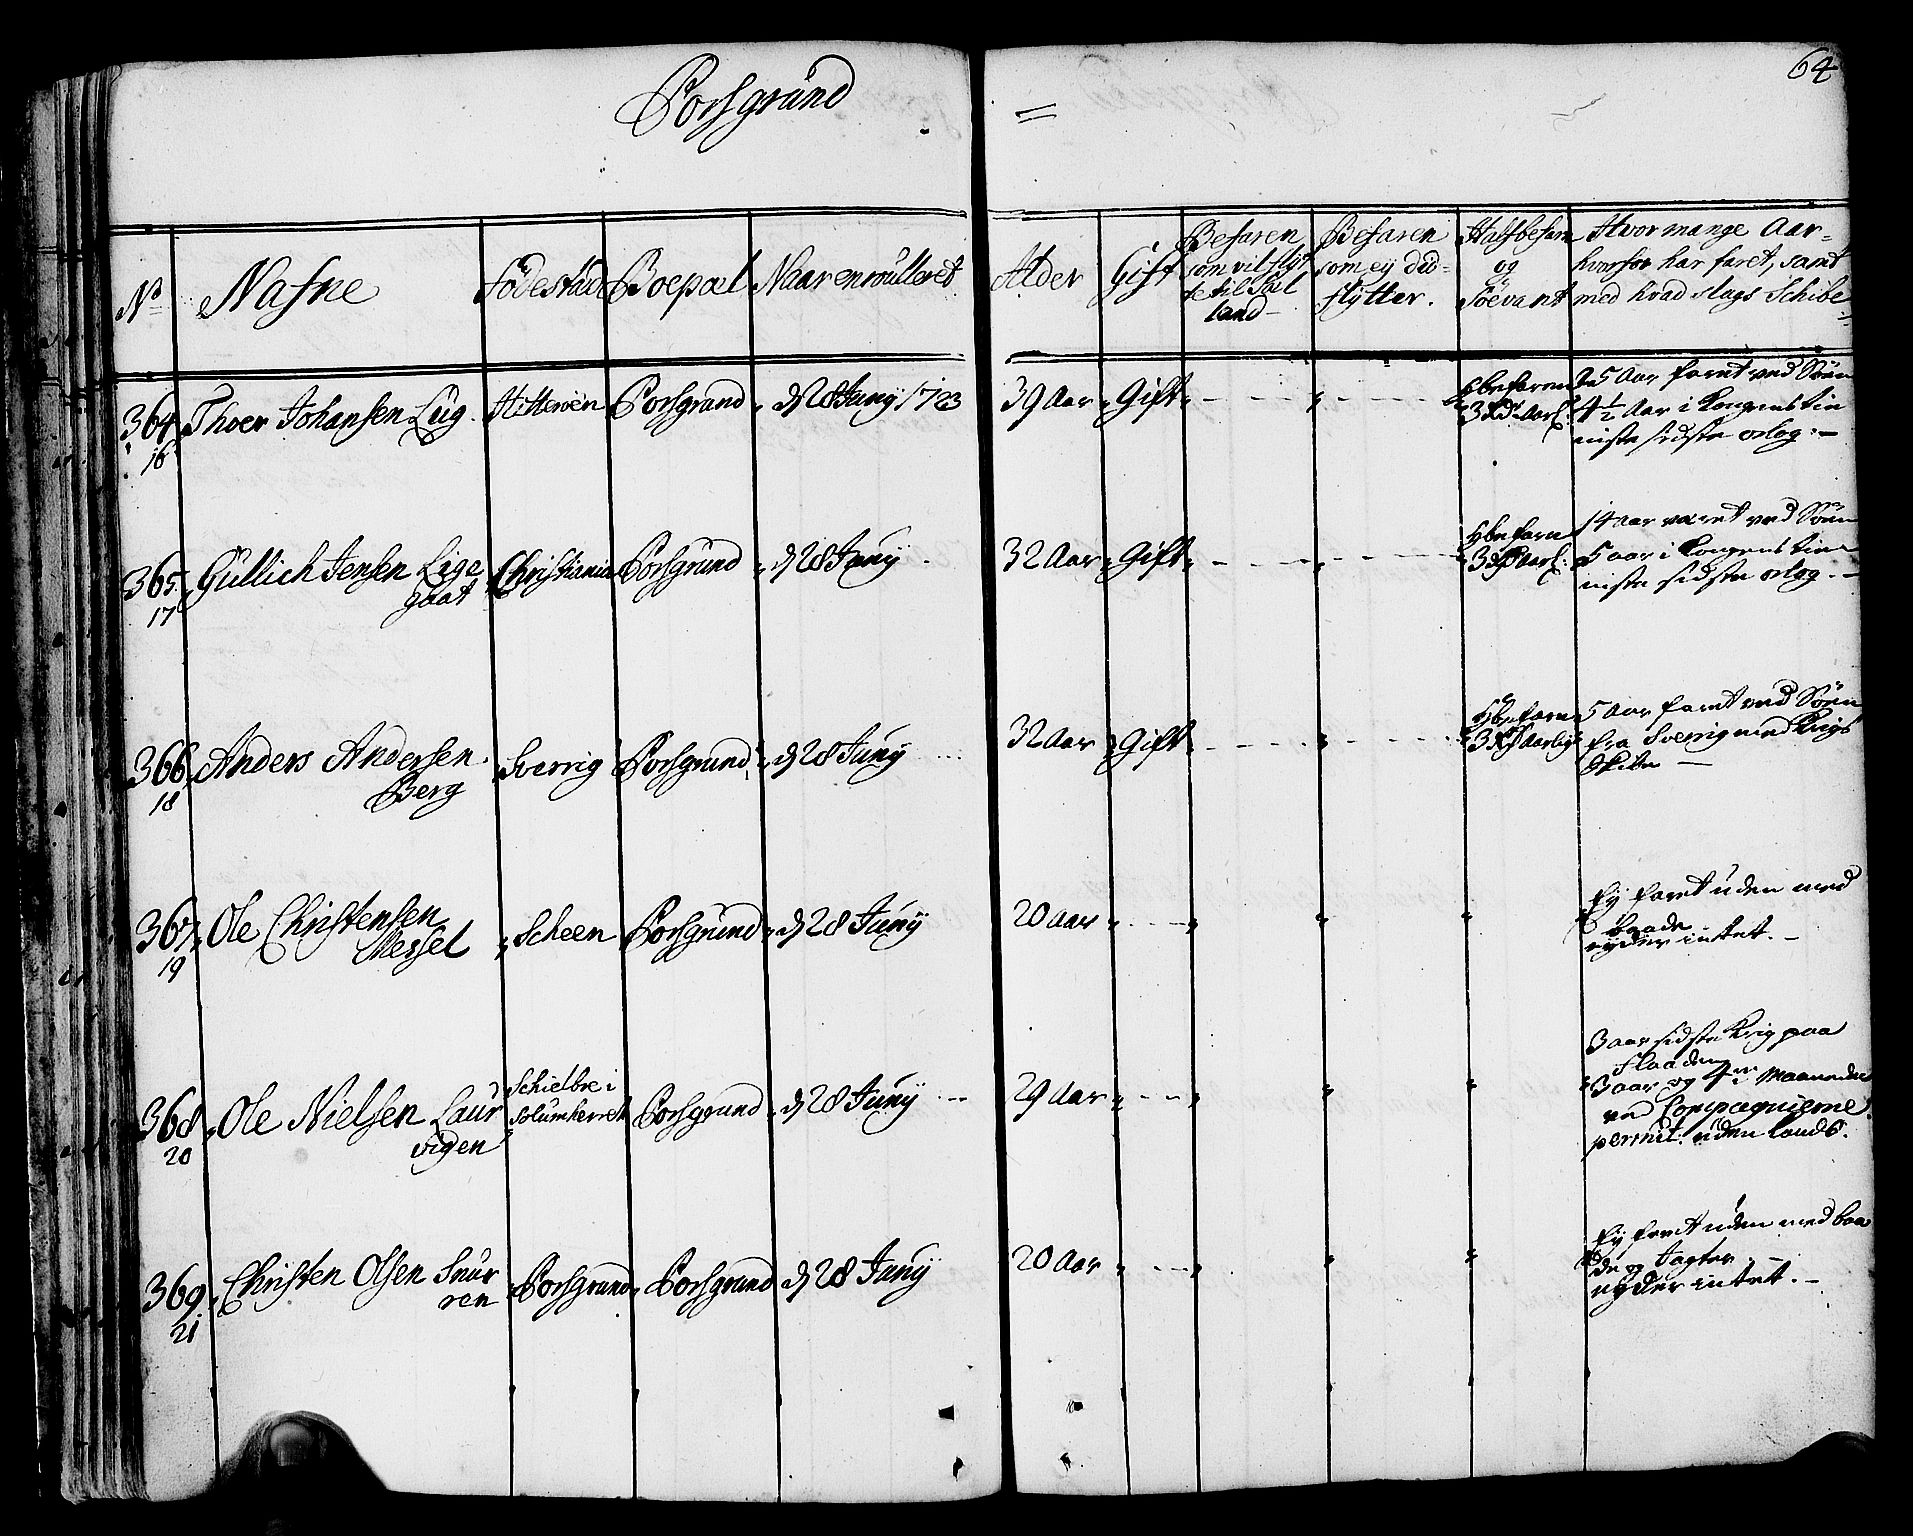 Porsgrund
64
No Nafne Födestäd Boepæl Naar enroulleret Alder Gift Befaren som vil flÿt te til Sæl land Befaren som eÿ did flÿtter. Halfbefarn og Söevant Hvor mange Aar hvorfor har faret, samt med hvad slags Schibe
364 16 Thoer Johansen Lüg Hitteröen Porsgrund d 28 Junÿ 1723 39 Aar Gift
25 Aar faret ved Söen
4 1/2 Aar i Kongens tie
niste sidste orlog
365 17 Güllich Jensen Lige
gaat Christiania Porsgrund d 28 Junÿ 32 Aar Gift
14 Aar været ved Söen
5 aar i Kongens tie
niste sidste orlog
366 18 Anders Andersen
Berg Sverrig Porsgrund d 28 Junÿ 32 Aar Gift
5 Aar faret ved Söen
fra Sverrig med Krigs
Skibe
367 19 Ole Christensen
Messel Scheen Porsgrund d 28 Junÿ 20 Aar
Eÿ faret uden med
baade
nyder intet.
368 20 Ole Nielsen Laur
vigen Schielbre i
Solumherret Porsgrund d 28 Junÿ 29 Aar
3 aar sidste Krig paa
Flaaden
3 aar og 4 Maaneder
ved Compagnierne
permit: uden lands.
369 21 Christen Olsen Snur
ren Porsgrund Porsgrund d 28 Junÿ 20 Aar
Eÿ faret uden med baa
de og Jagter
nyder intet.